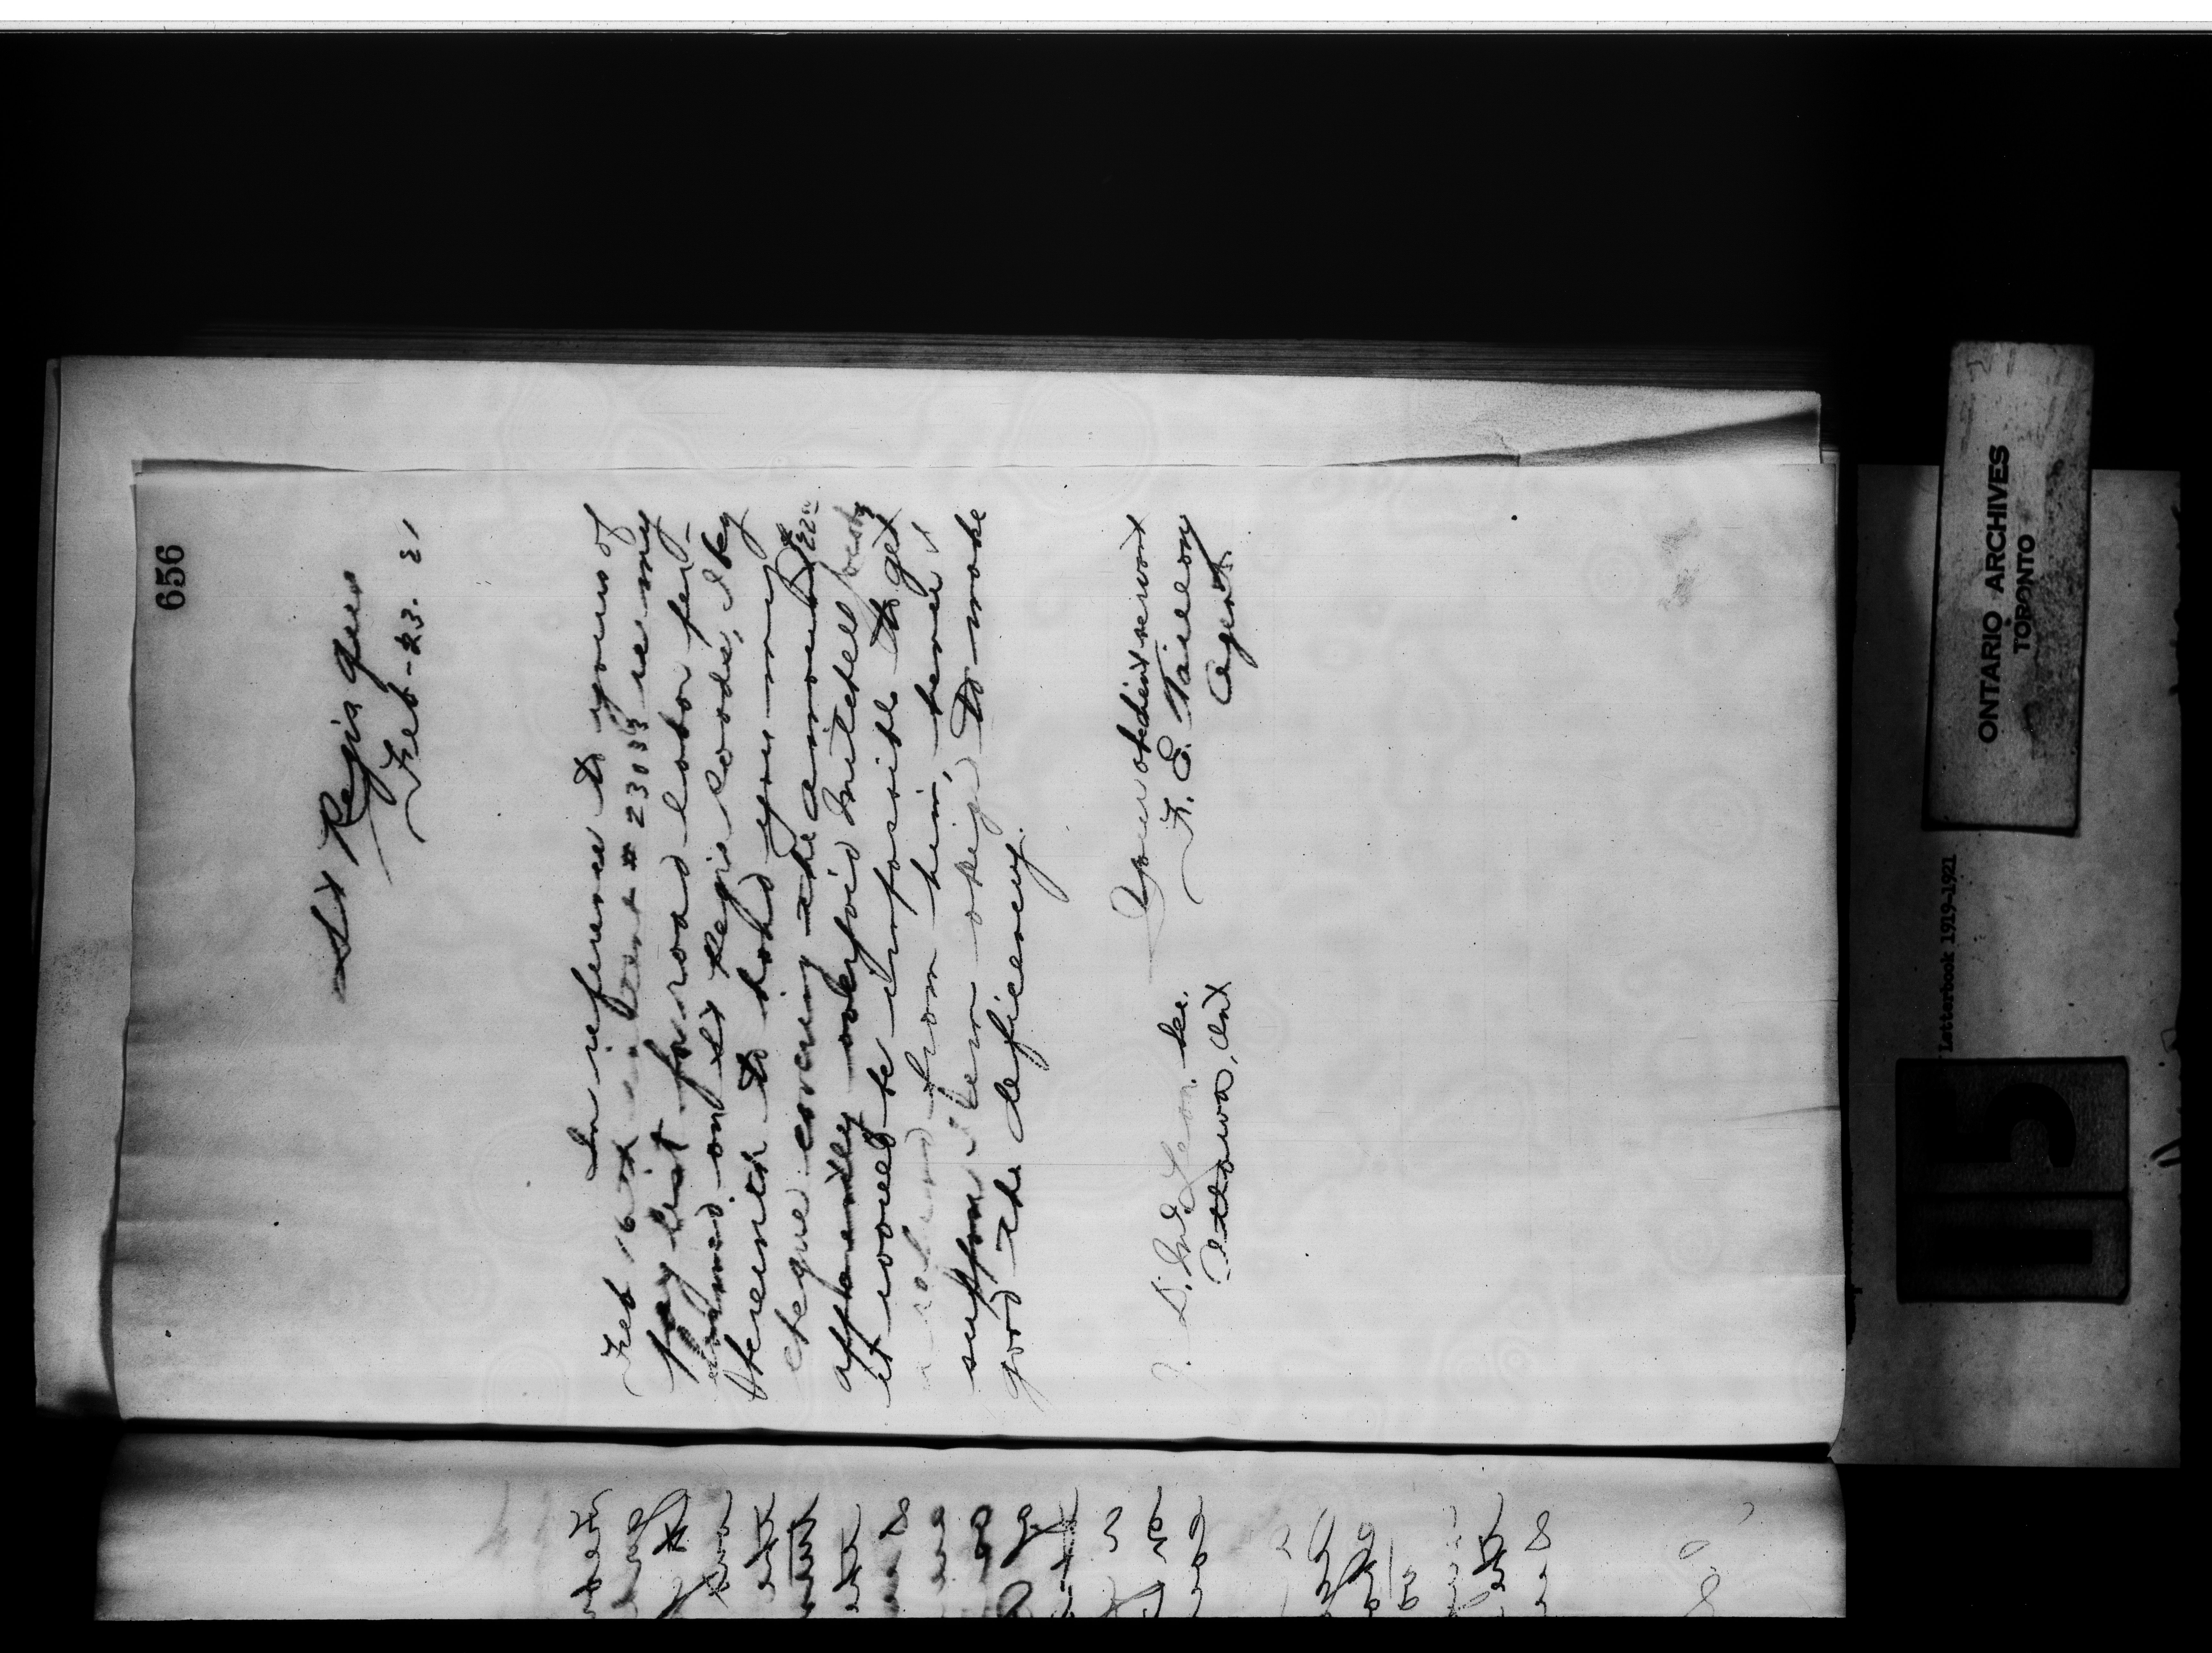 656
St Regis Que
Feb-23. 21
In reference to yours of
Feb 16th # 23033 re my
pay list for road labor per-
formed on St Regis roads, I beg
herewith to hand you my
cheque covering the amount
apparently overpaid Mitchell
it would be impossible to get
a refund from him, hence I
suppose I am obliged to make
good the deficiency.
Your obedient servant
F. E. Taillon
Agent
J. D. McLean. Sec.
Ottawa, Ont
ONTARIO ARCHIVES
TORONTO
Letterbook 1919-1921
115